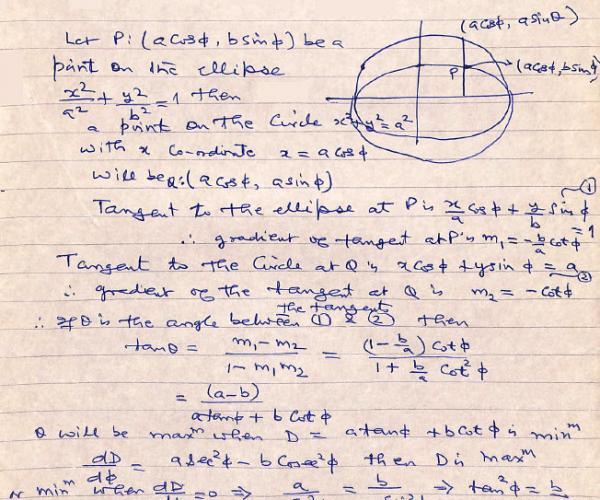 Let P: (a cosφ, b sinφ) be a
point on the ellipse
x²/a² + y²/b² = 1 then
a point on the Circle x²+y²=a²
with x co-ordinate x = a cosφ
will be Q: (a cosφ, a sinφ)
(a cosφ, a sinθ)
P
(a cosφ, b sinφ)
Tangent to the ellipse at P is x/a cosφ + y/b sinφ = 1 ①
∴ gradient of tangent at P is m₁ = -b/a cotφ
Tangent to the Circle at Q is x cosφ + y sinφ = a ②
∴ gradient of the tangent at Q is m₂ = -cotφ
∴ If θ is the angle between the tangents ① & ② then
tanθ = (m₁-m₂)/(1-m₁m₂) = ((1-b/a) cotφ)/(1 + b/a cot²φ)
= (a-b)/(a tanφ + b cotφ)
θ will be maxᵐ when D = a tanφ + b cotφ is minᵐ
dD/dφ = a sec²φ - b cosec²φ then D is maxᵐ
or minᵐ when dD/dφ = 0 ⇒ a = b ⇒ tan²φ = b